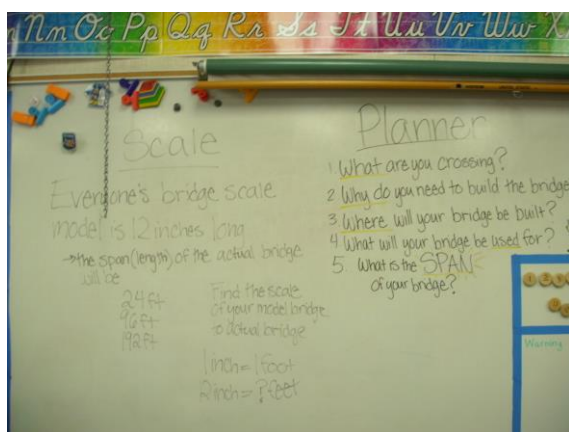 n Nn Oo Pp Qq Rr Ss Tt Uu Vv Ww X
Scale
Everyone's bridge scale
model is 12 inches long
→the span (length) of the actual bridge
will be
24 ft
96 ft
192 ft
Find the scale
of your model bridge
to actual bridge
1 inch = 1 foot
2 inch = ? feet
Planner
1 What are you crossing?
2 Why do you need to build the bridge
3 Where will your bridge be built?
4 What will your bridge be used for?
5. What is the SPAN
of your bridge?
Warning